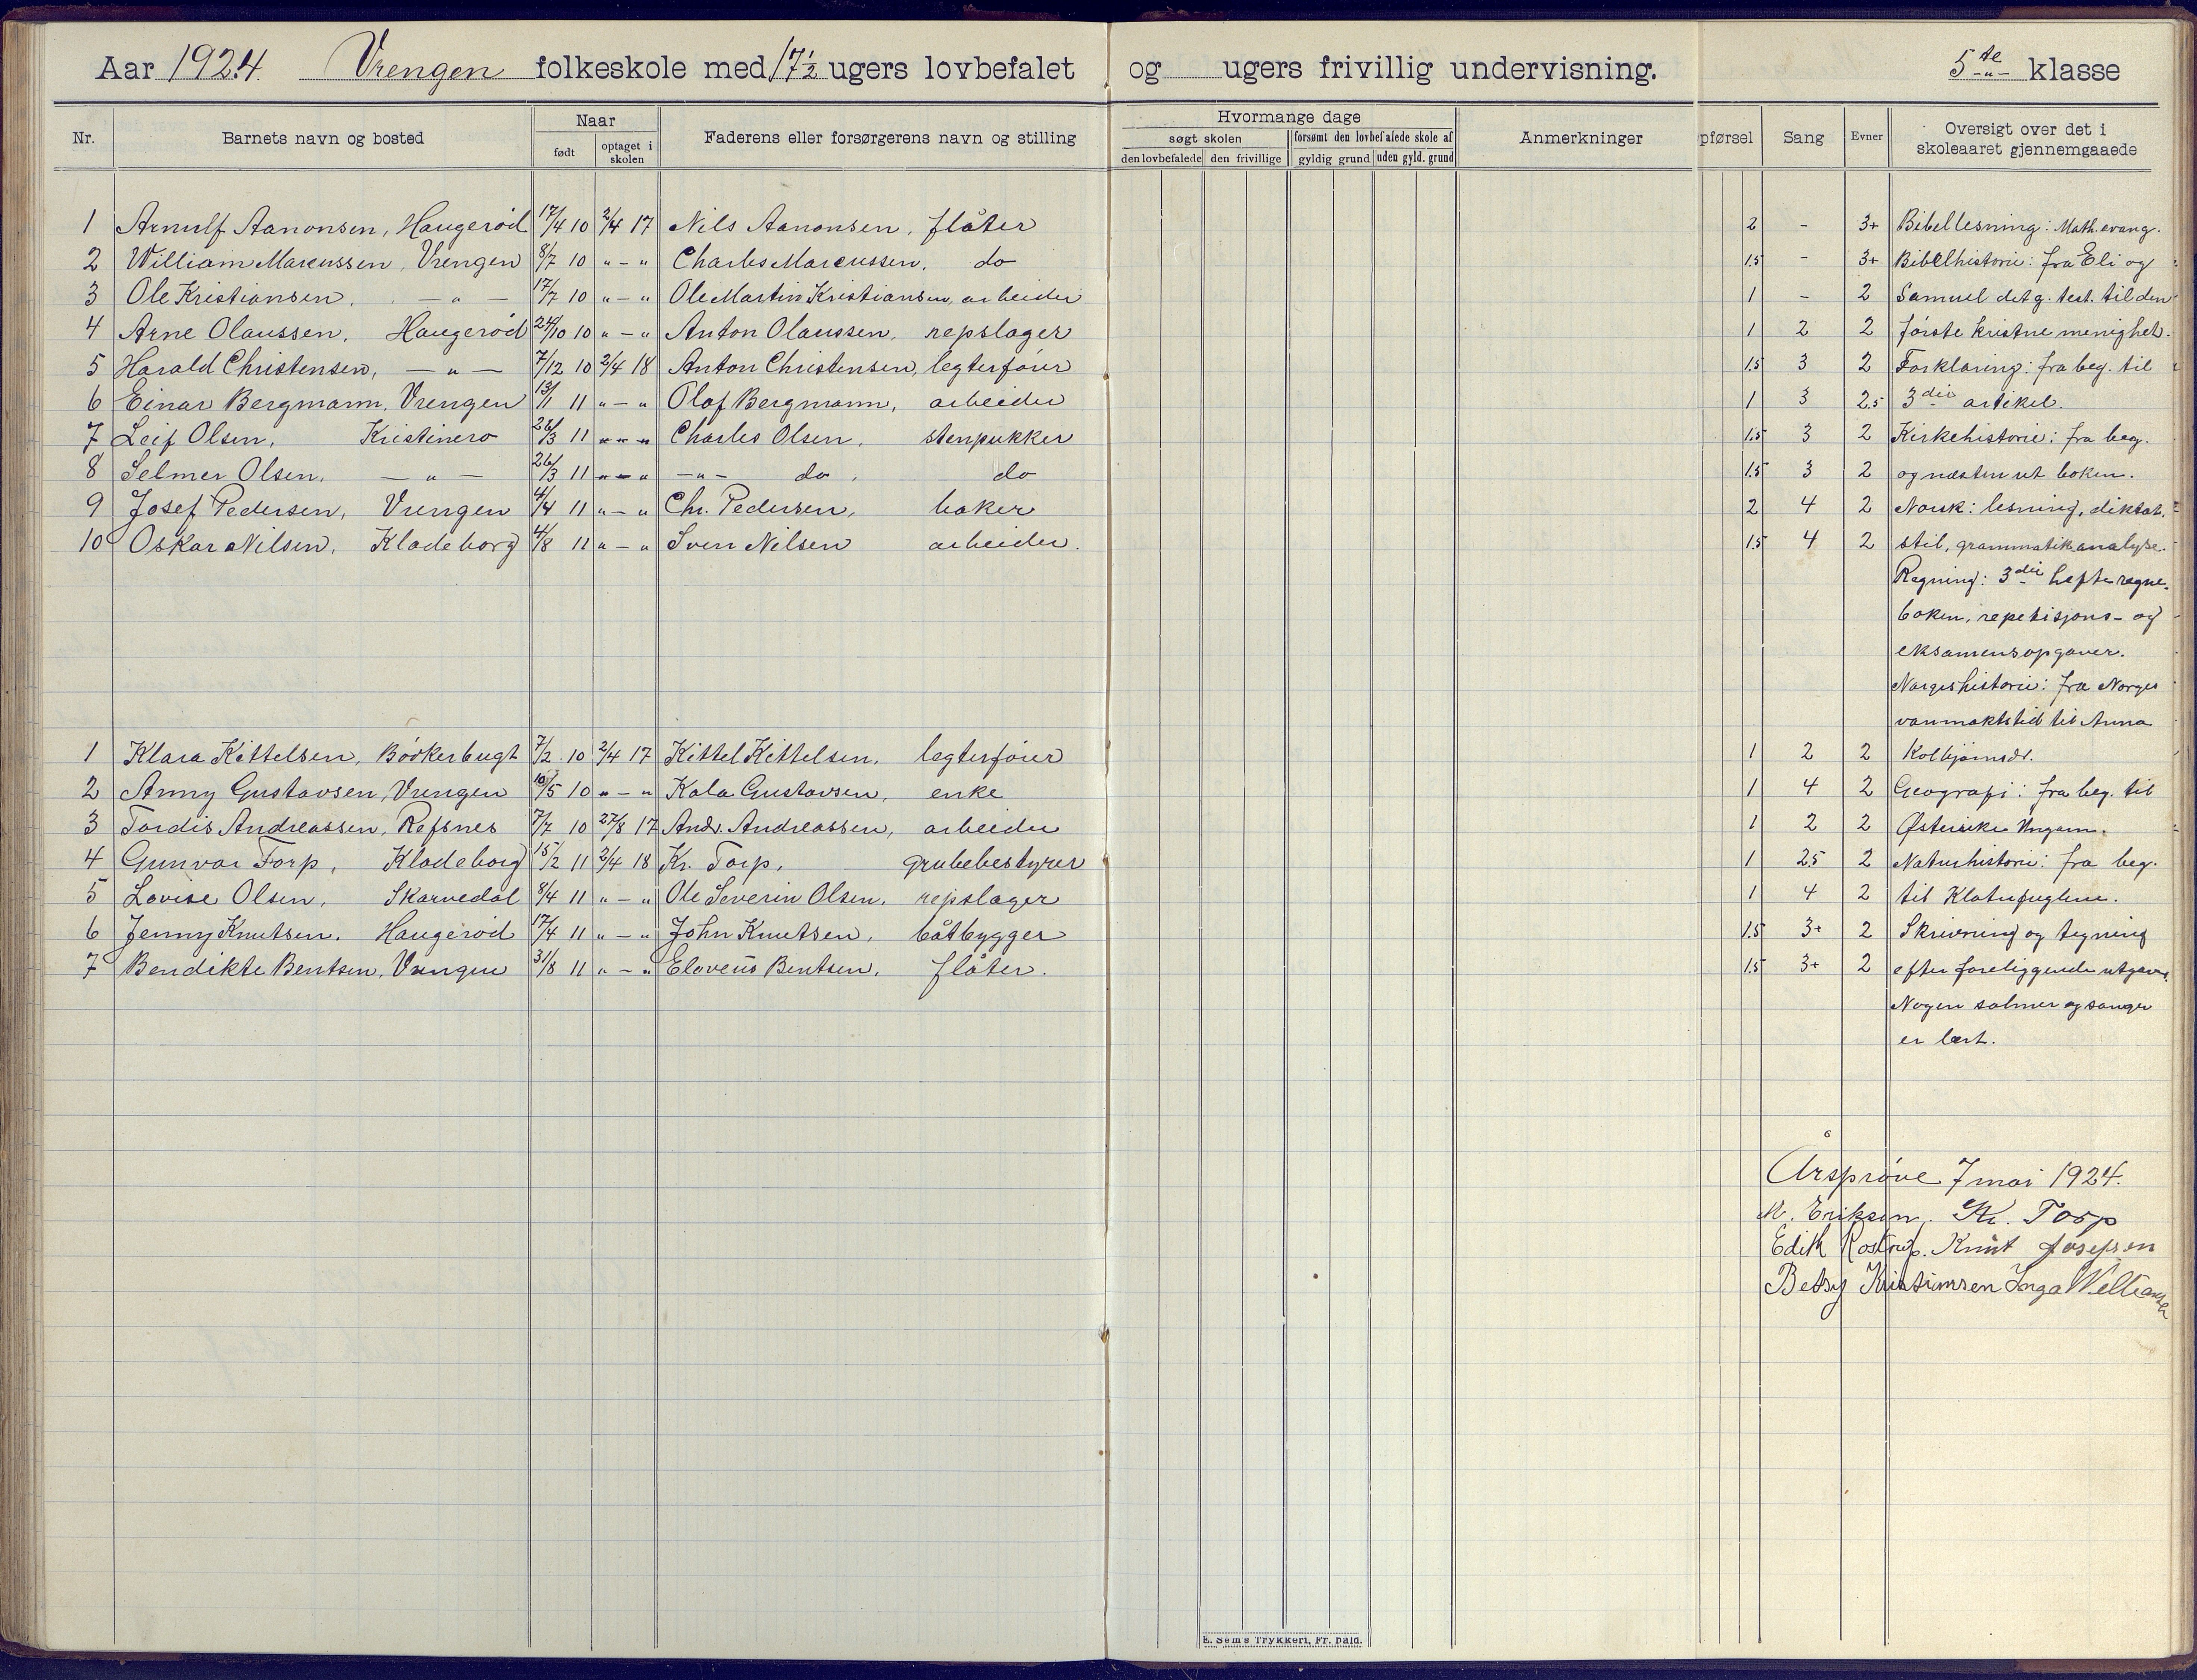 Aar 1924. Vrengen folkeskole med 17½ ugers lovbefalet og ugers frivillig undervisning. 5te klasse
Nr. Barnets navn og bosted Naar født optaget i skolen Faderens eller forsørgerens navn og stilling Hvormange dage søgt skolen den lovbefalede den frivillige forsømt den lovbefalede skole af gyldig grund uden gyld. grund Anmerkninger pførsel Sang Evner Oversigt over det i skoleaaret gjennemgaaede
1 Arnulf Aanonsen, Haugeröd 17/4 10 2/4 17 Nils Aanonsen, flåter 2 - 3+ Bibellesning: Math. evang.
2 William Marcussen, Vrengen 8/7 10 " - " Charles Marcussen, do 1.5 - 3+ Bibelhistorie: fra Eli og
3 Ole Kristiansen, - " - 17/7 10 " - " Ole Martin Kristiansen, arbeider 1 - 2 Samuel det g. test. til den
4 Arne Olaussen, Haugeröd 24/10 10 " - " Anton Olaussen, repslager 1 2 2 förste kristne menighet.
5 Harald Christensen, - " - 7/12 10 2/4 18 Anton Christensen, legterförer 1.5 3 2 Forklaring: fra beg. til
6 Einar Bergmann, Vrengen 13/1 11 " - " Olaf Bergmann, arbeider 1 3 2.5 3die artikel.
7 Leif Olsen, Kristinero 26/3 11 " - " Charles Olsen, stenpukker 1.5 3 2 Kirkehistorie: fra beg.
8 Selmer Olsen, - " - 26/3 11 " - " - " - do, do 1.5 3 2 og næsten ut boken.
9 Josef Pedersen, Vrengen 4/4 11 " - " Chr. Pedersen, baker 2 4 2 Norsk: lesning, diktat.
10 Oskar Nilsen, Kladeborg 4/8 11 " - " Sven Nilsen arbeider. 1.5 4 2 stil, grammatik analyse.
Regning: 3die hefte regne-
boken, repetisjons- og
eksamensopgaver.
Norgeshistorie: fra Norges
vanmaktstid til Anna
1 Klara Kittelsen, Bödkerbugt 7/2 10 2/4 17 Kittel Kittelsen, legterförer 1 2 2 Kolbjörnsdr.
2 Anny Gustavsen, Vrengen 10/5 10 " - " Kala Gustavsen, enke 1 4 2 Geografi: fra beg. til
3 Tordis Andreassen, Refsnes 7/7 10 27/8 17 Andr. Andreassen, arbeider 1 2 2 Østerrike Ungarn.
4 Gunvor Torp, Kladeborg 15/2 11 2/4 18 Kr. Torp, grubebestyrer 1 2.5 2 Naturhistorie: fra beg.
5 Lovise Olsen, Skarvedal 8/4 11 " - " Ole Severin Olsen, repslager 1 4 2 til Klatrefuglene.
6 Jenny Knutsen. Haugeröd 17/4 11 " - " John Knutsen, båtbygger 1.5 3+ 2 Skrivning og tegning
7 Bendikte Bentsen, Vrengen 31/8 11 " - " Eloveus Bentsen, flåter. 1.5 3+ 2 efter foreliggende utgaver.
Nogen salmer og sanger
er lært.
Årspröve 7 mai 1924.
M. Eriksen. Kr. Torp
Edith Rostrup. Knut Josefsen
Betsy Kristiansen Inga Williamsen
E. Sem's Trykkeri, Fr. hald.